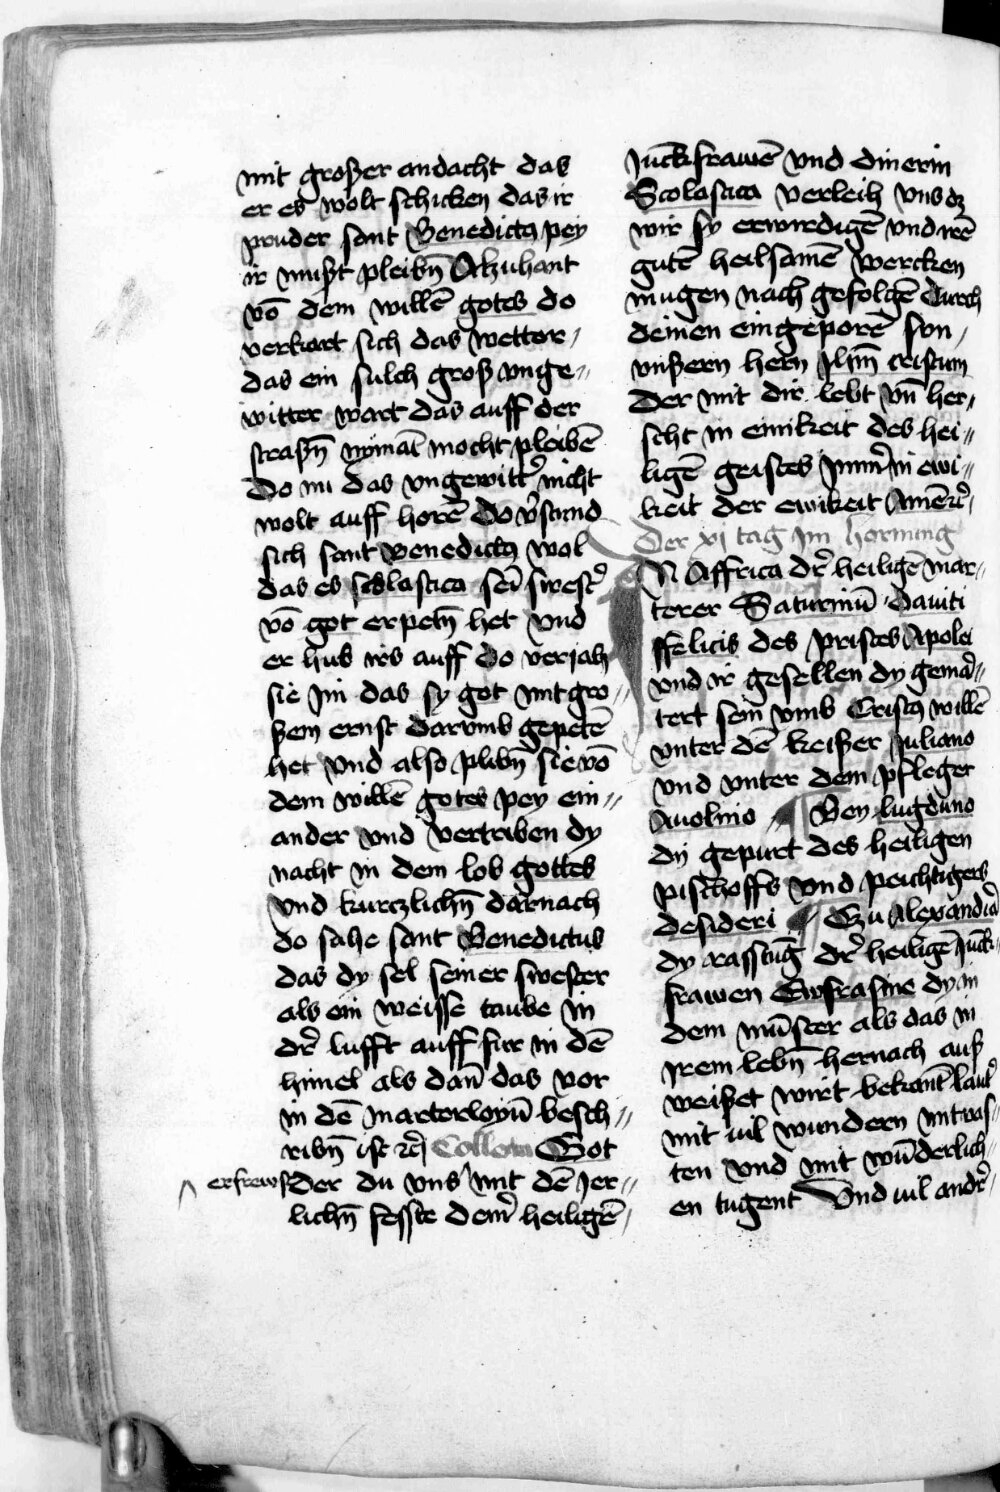 mit großer andacht das
er es wolt schicken das ir
pruder sant Benedictꝯ pey
ir mußt pleibn̄ Alzuhant
vō dem willē gotes do
verkart sich das wetter〃
das ein sulch groß vnge〃
witter wart das auff der
straßn̄ nymāt mocht pleibē
Do nu das vngewitt̓ nicht
wolt auff horē Do v̓stund
sich sant Benedictꝯ wol
das es scolastica sei͂ swest̓
vō got erpetn̄ het Vnd
er hub irs auff do verjah
sie im das sy got mit gro〃
ßem ernst darumb gepetē
het Vnd also plibn̄ sie vō
dem willē gotes pey ein〃
ander vnd vertriben dy
nacht in dem lob gottes
Vnd kurczlichn̄ darnach
do sahe sant Benedictus
das dy sel seiner swester
als ein weisse taube in
dr̓ lufft auff fur in dē
himel als dan̄ das vor
in dē marterloyū besch〃
ribn̄ ist ꝛc̄ Collecta Got
erfrews der du vns mit dē jer〃
lichn̄ feste dein̓ heiligē〃
Jūckfrawē vnd dinerin
Scolastica verleih vns dz
wir sy erwirdigē vnd irē
gutē heilsamē wercken
mugen nach gefolgē durch
deinen eingeporē sun〃
vnßern hern Jhm̄ cristum
Der mit dir lebt vn̄ her〃
scht in einikeit des hei〃
ligē geistes ymm̓ in ewi〃
keit der ewikeit Amē ꝛc̓
Der xj tag im hornung
IN Affrica dr̓ heiligē mar〃
terer Saturninū Dauiti
ffelicis des pristes Apolei
vnd ir gesellen dy gema̓〃
tert sein vmb Cristꝯ willē
vnter dē keißer Juliano
vnd vnter dem pfleger
Auolino 〃 Bey lugduno
dy gepurt des heiligen
pischoffs vnd peichtigers
desideri 〃 Zu Alexandria̓
dy rasstūg dr̓ heiligē Jūck〃
frawen Ewfrasine dy in
dem mūnster als das in
jrem lebn̄ hernach auß
weißet wirt bekant laut̓
mit vil wundern mit vas〃
ten vnd mit wūderlich〃
en tugent Vnd vil andr̓